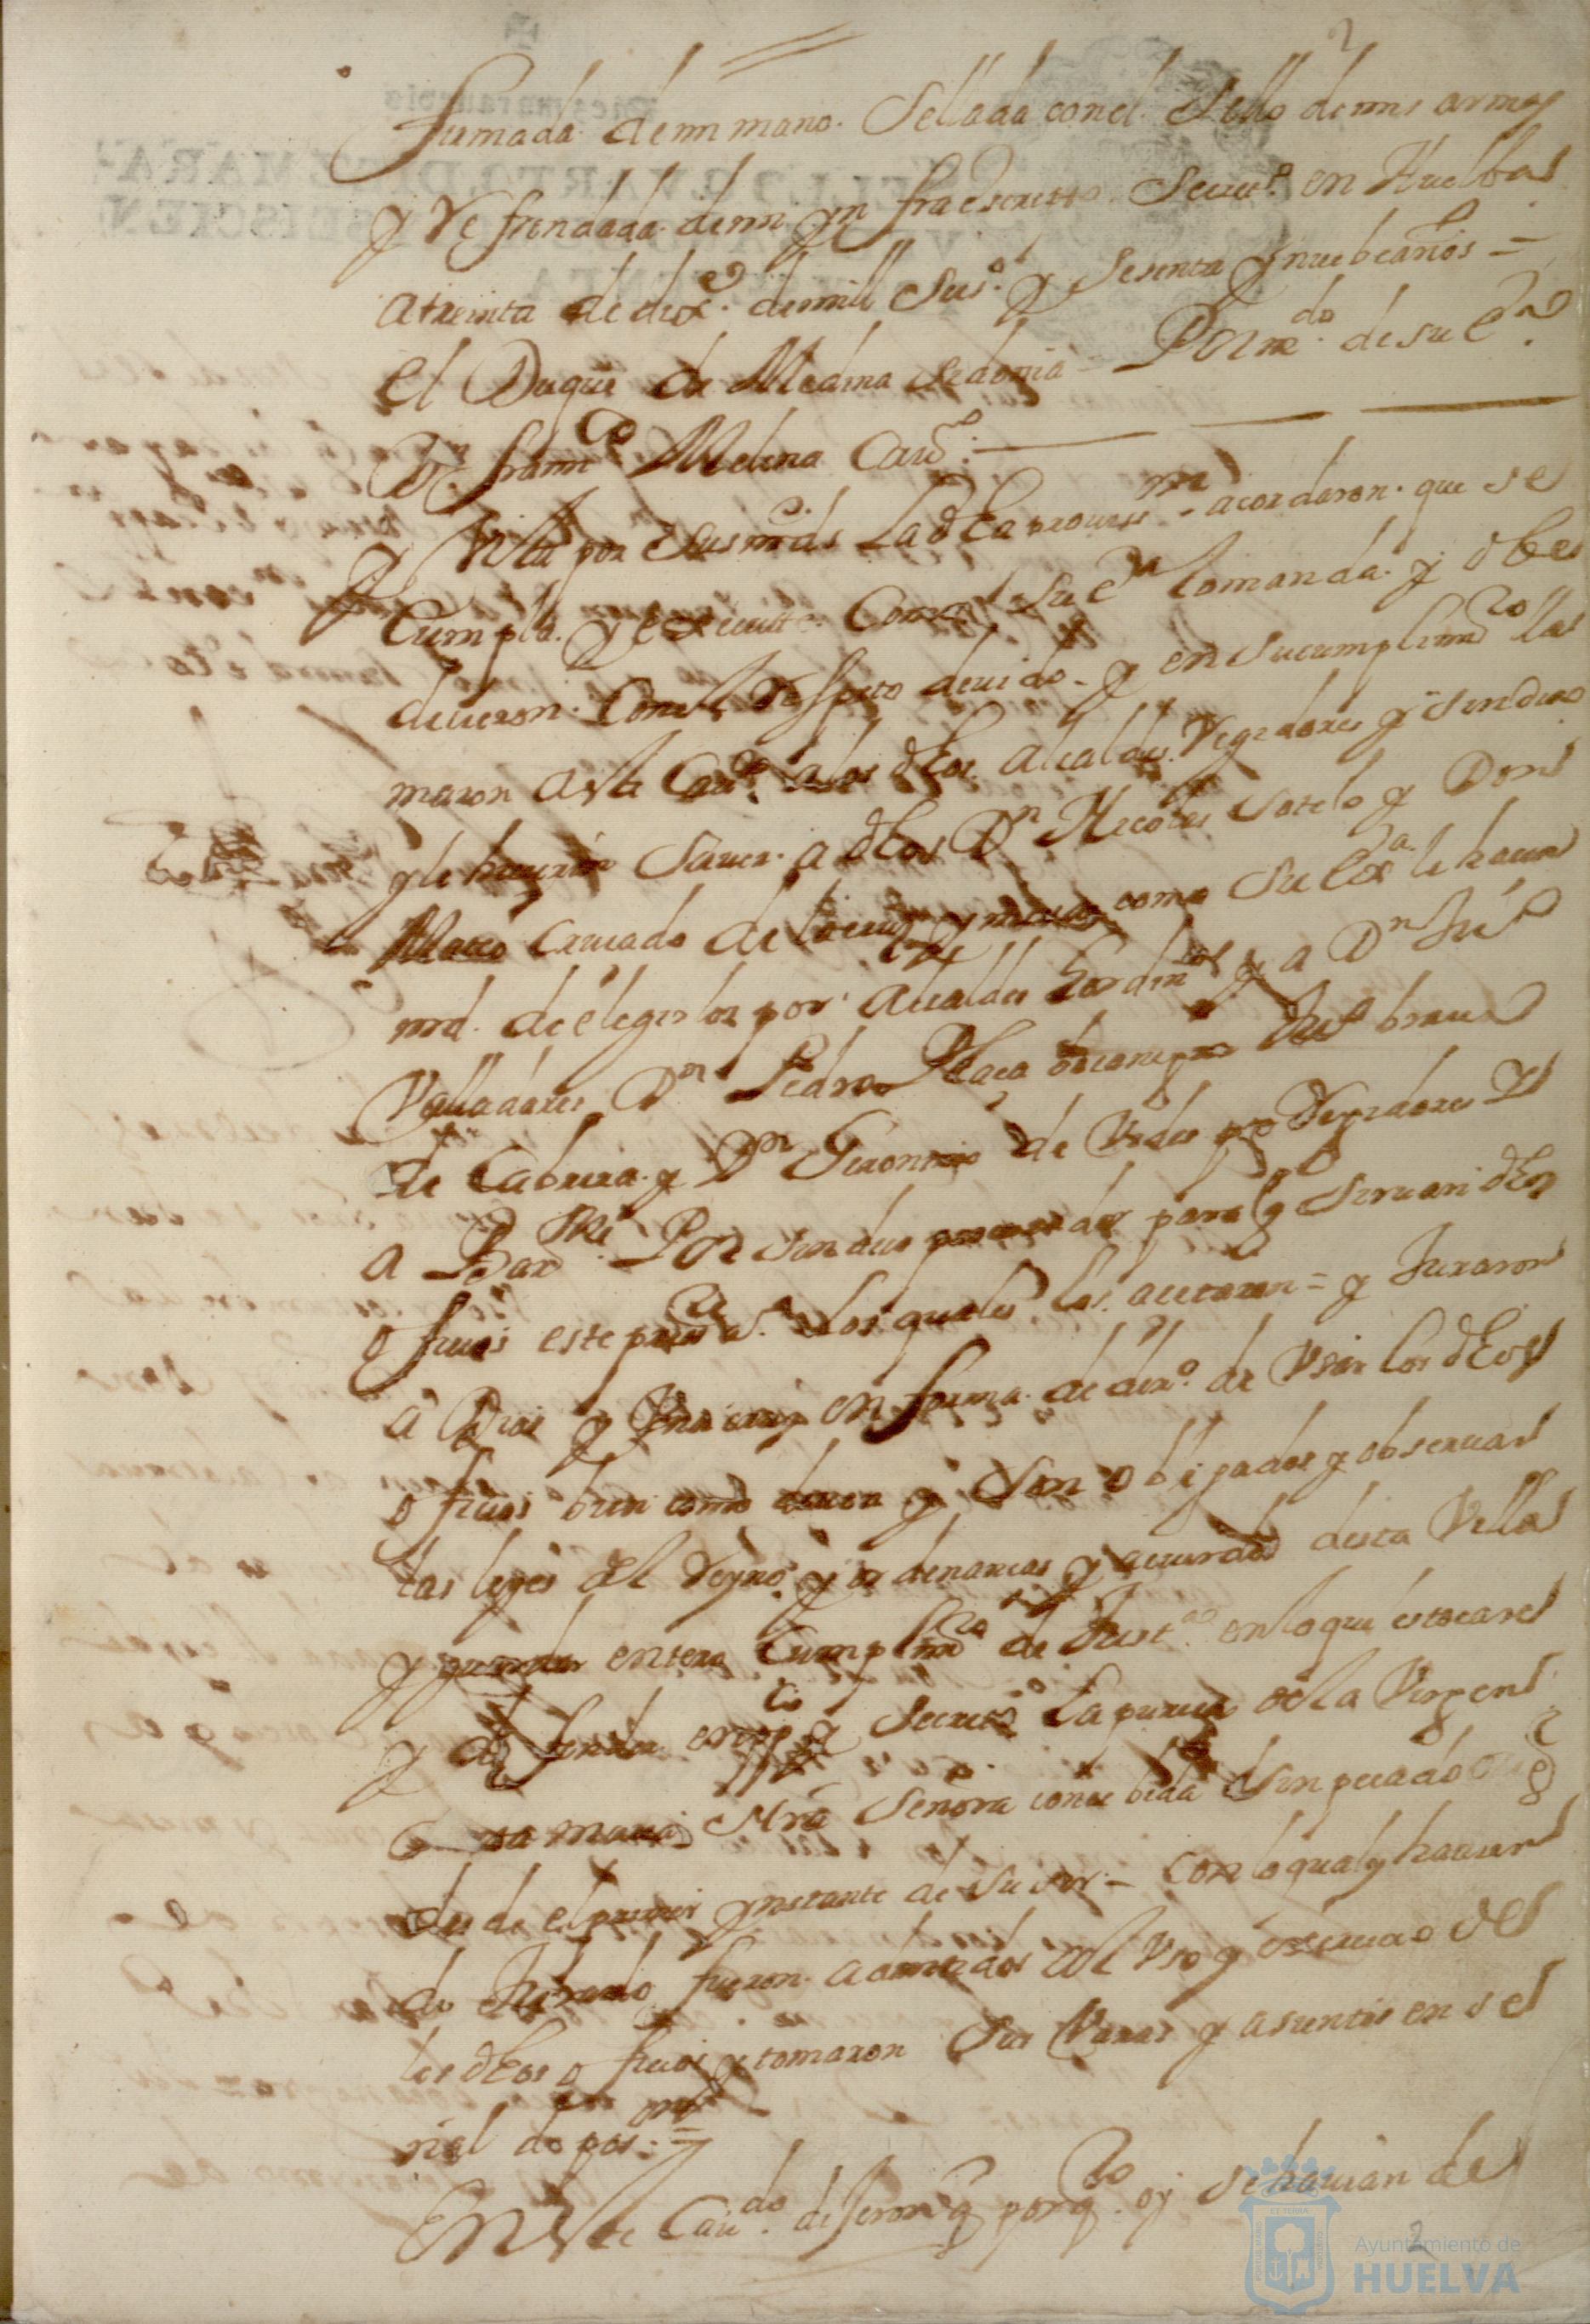 2
firmada de mi mano. Sellada con el Sello de mis armas
y Refrendada de mi ynfraescritto Secretº. en Huelba
a treinta de dize. de mill Seisº. y Sesenta y nuebe años =
el Duque de Medina Sidonia = Por mdo. de su Exa.
Dn. franco Molina Cau
y Vista por Sus mds la dha provisn acordaron. que se
Cumpla. y execute Como Su exa lo manda. y obe
decieron. Con el Respeto deuido - y en su cumplimto lla
maron a este Caudo. a los dhos. Alcaldes. Regidores y sindico
y le hicieron Sauer. a dhos Dn Nicolas Sotelo y Don
Marco Cruçado de como Su Exa. le hacia
md. de elegirlos por Alcaldes hordinos y a Dn Juº
Valladares Dn Pedro Juº brauo
de Cabrera. y Dn Geronimo de Vides por Regidores y
a Bar Por sindico procurador para q Siruan dhos
oficios este presste a. los quales los. acetaron = y Juraron
a Dios y en forma. de derº. de Vsar los dhos
oficios bien como deuen y Son obligados y obseruar
las leyes del Reyno. y ordenanças y acuerdos desta Villa
y guardar entero Cumplimto de Justa. en lo que es tocare
y defender en ppco y Secreto La pureça de la Virgen
Sta maria Nra Señora conce bida Sin pecado
desde el primer ynstante de Su ser - Con lo qual y hauer
do Jurado fueron. admitidos al Vso y exercicio de
los dhos oficios y tomaron Sus Varas y asientos en se
ñal de poson. =
En este Caudo. dijeron q por qto oy se hauian de
2
Ayuntamiento de
HUELVA